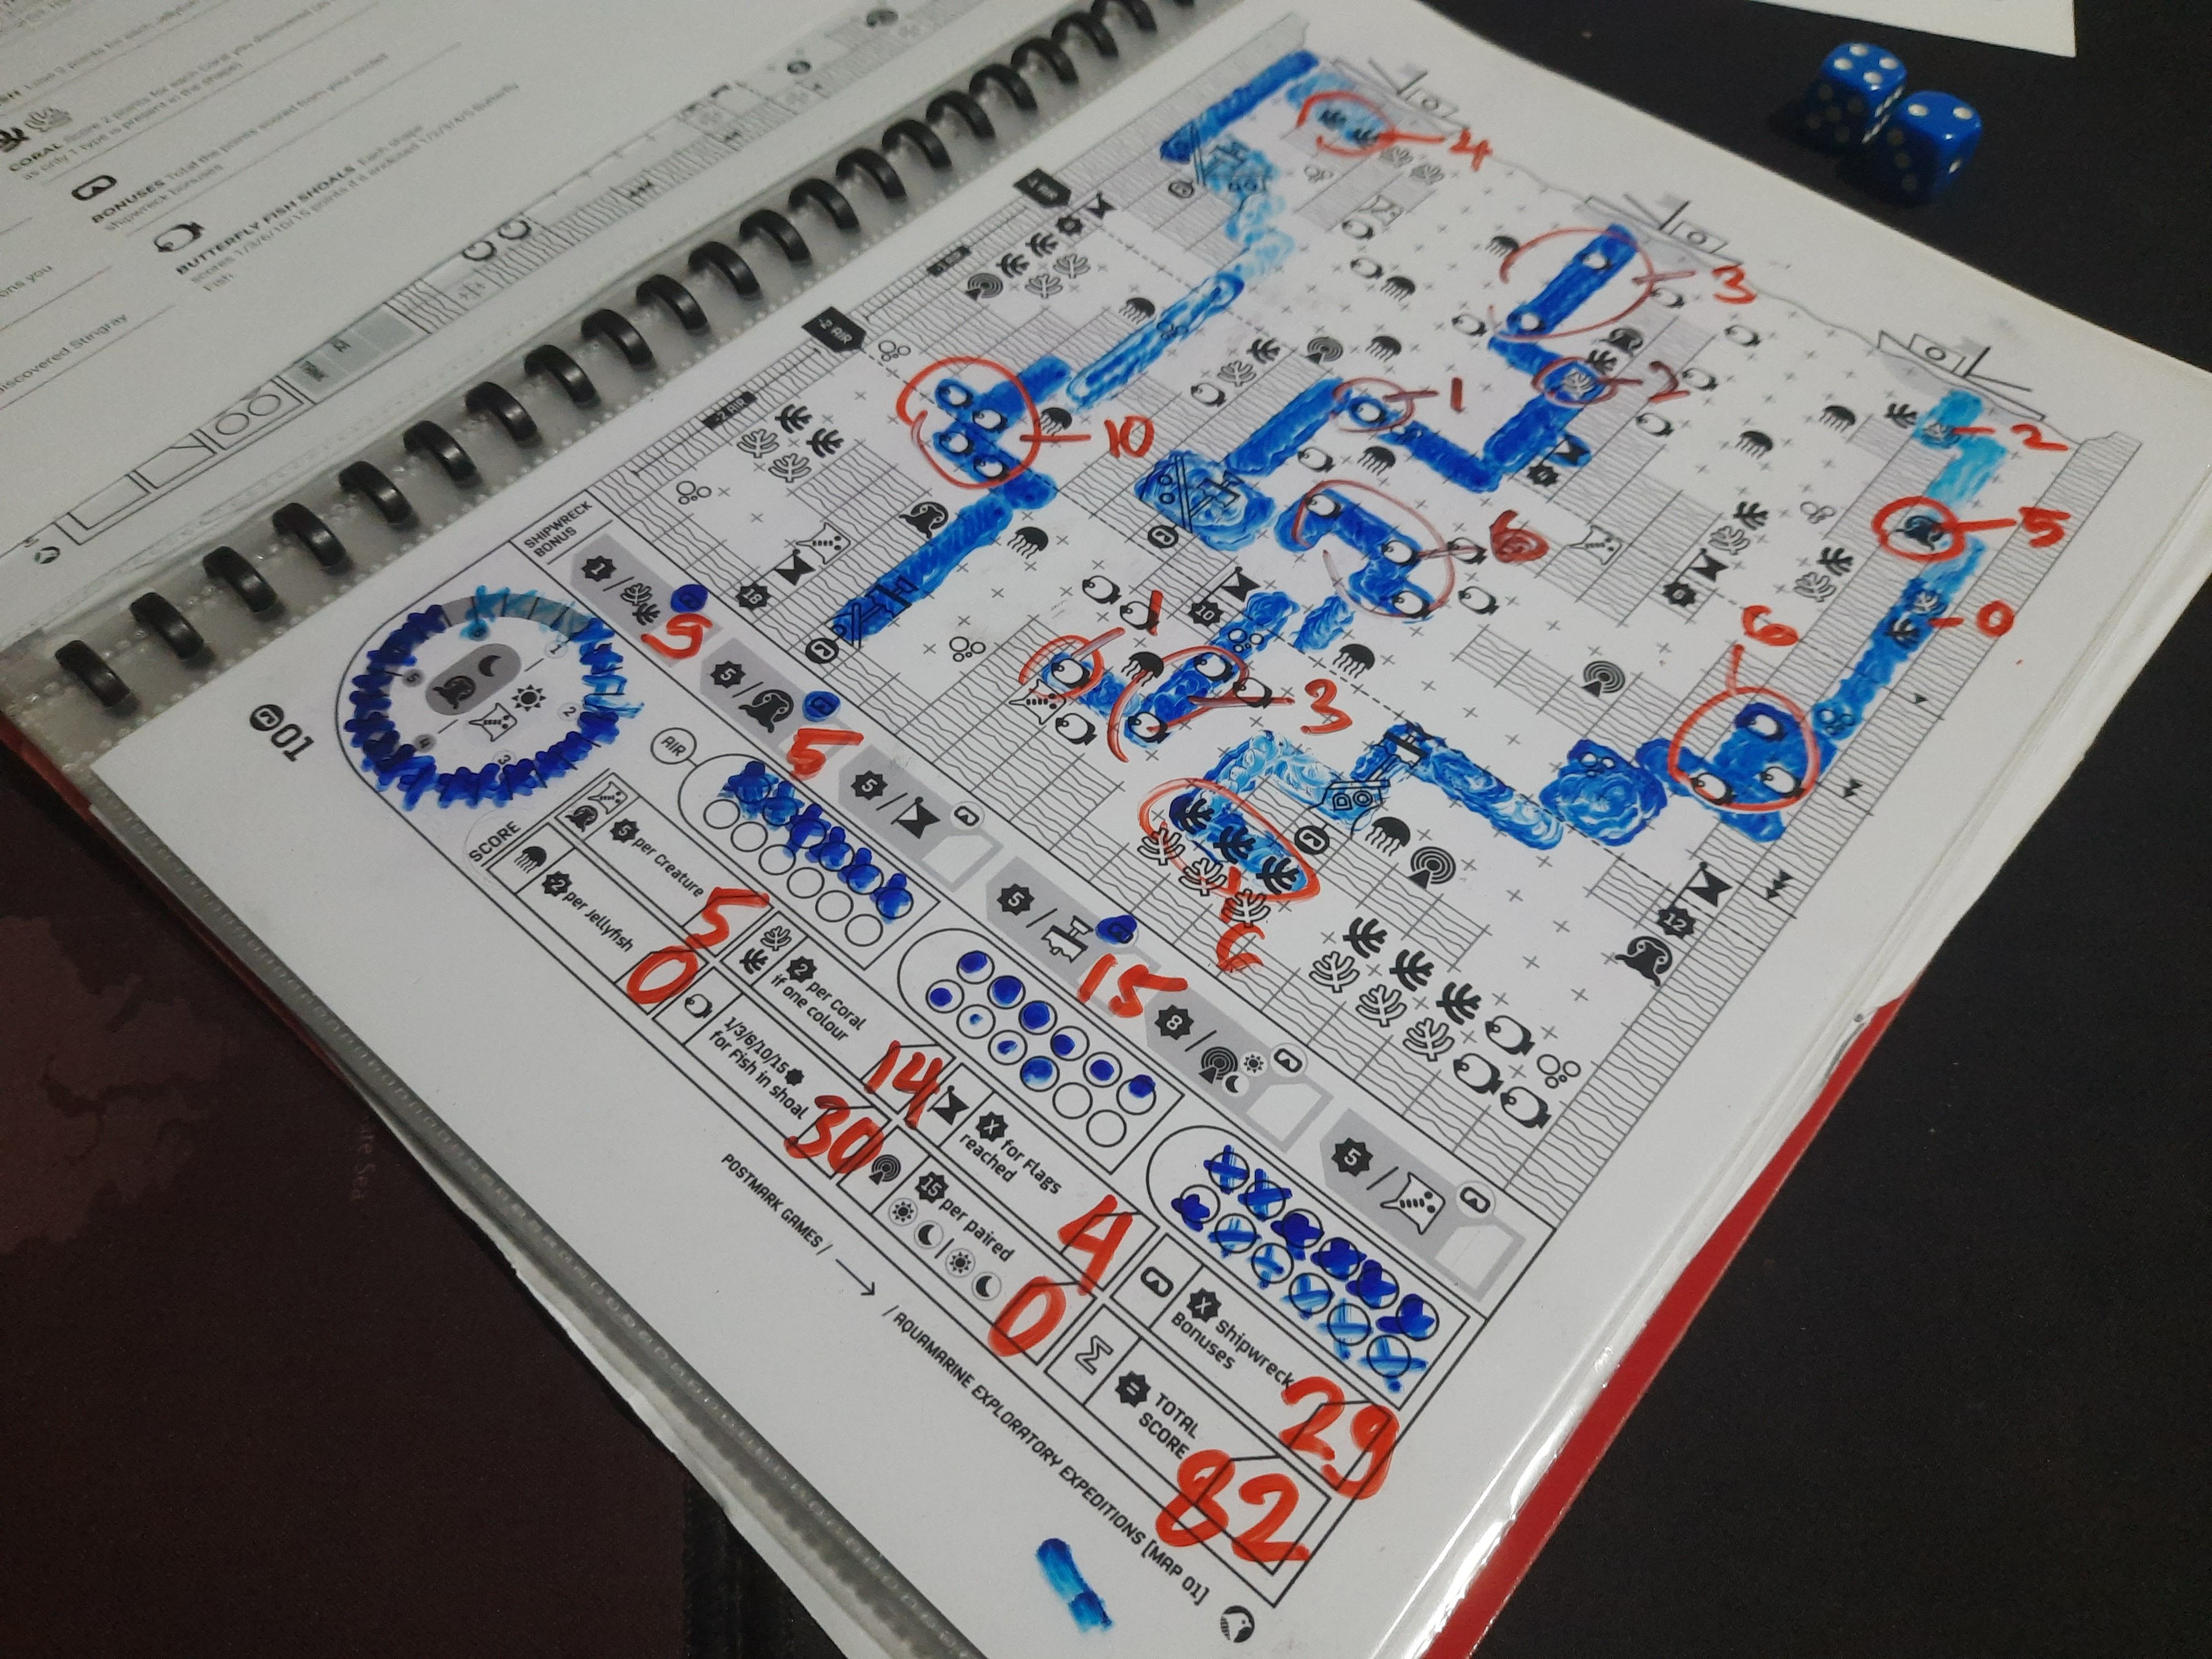 CORAL Score 2 points for each Coral you discovered
as only 1 type is present in the shape
BONUSES Total the points scored from your
shipwreck bonuses
BUTTERFLY FISH SHOALS Each shape
scores 1/3/6/10/15 points if it enclosed 1/2/3/4/5 Butterfly
Fish
discovered Stingray
4
-1 AIR
-1 AIR
3
-2 AIR
-2 AIR
1
2
10
2
6
5
18
10
1
3
0
6
9
6
12
SHIPWRECK
BONUS
1 /
9
5 /
5
5 /
5 /
15
8 /
5 /
01
1
2
3
4
5
AIR
SCORE
5 per Creature
5
2 per Jellyfish
0
2 per Coral
if one colour
14
1/3/6/10/15
for Fish in shoal
30
X for Flags
reached
4
15 per paired
0
X Shipwreck
Bonuses
29
Σ = TOTAL
SCORE
82
POSTMARK GAMES / → / AQUAMARINE EXPLORATORY EXPEDITIONS [MAP 01]